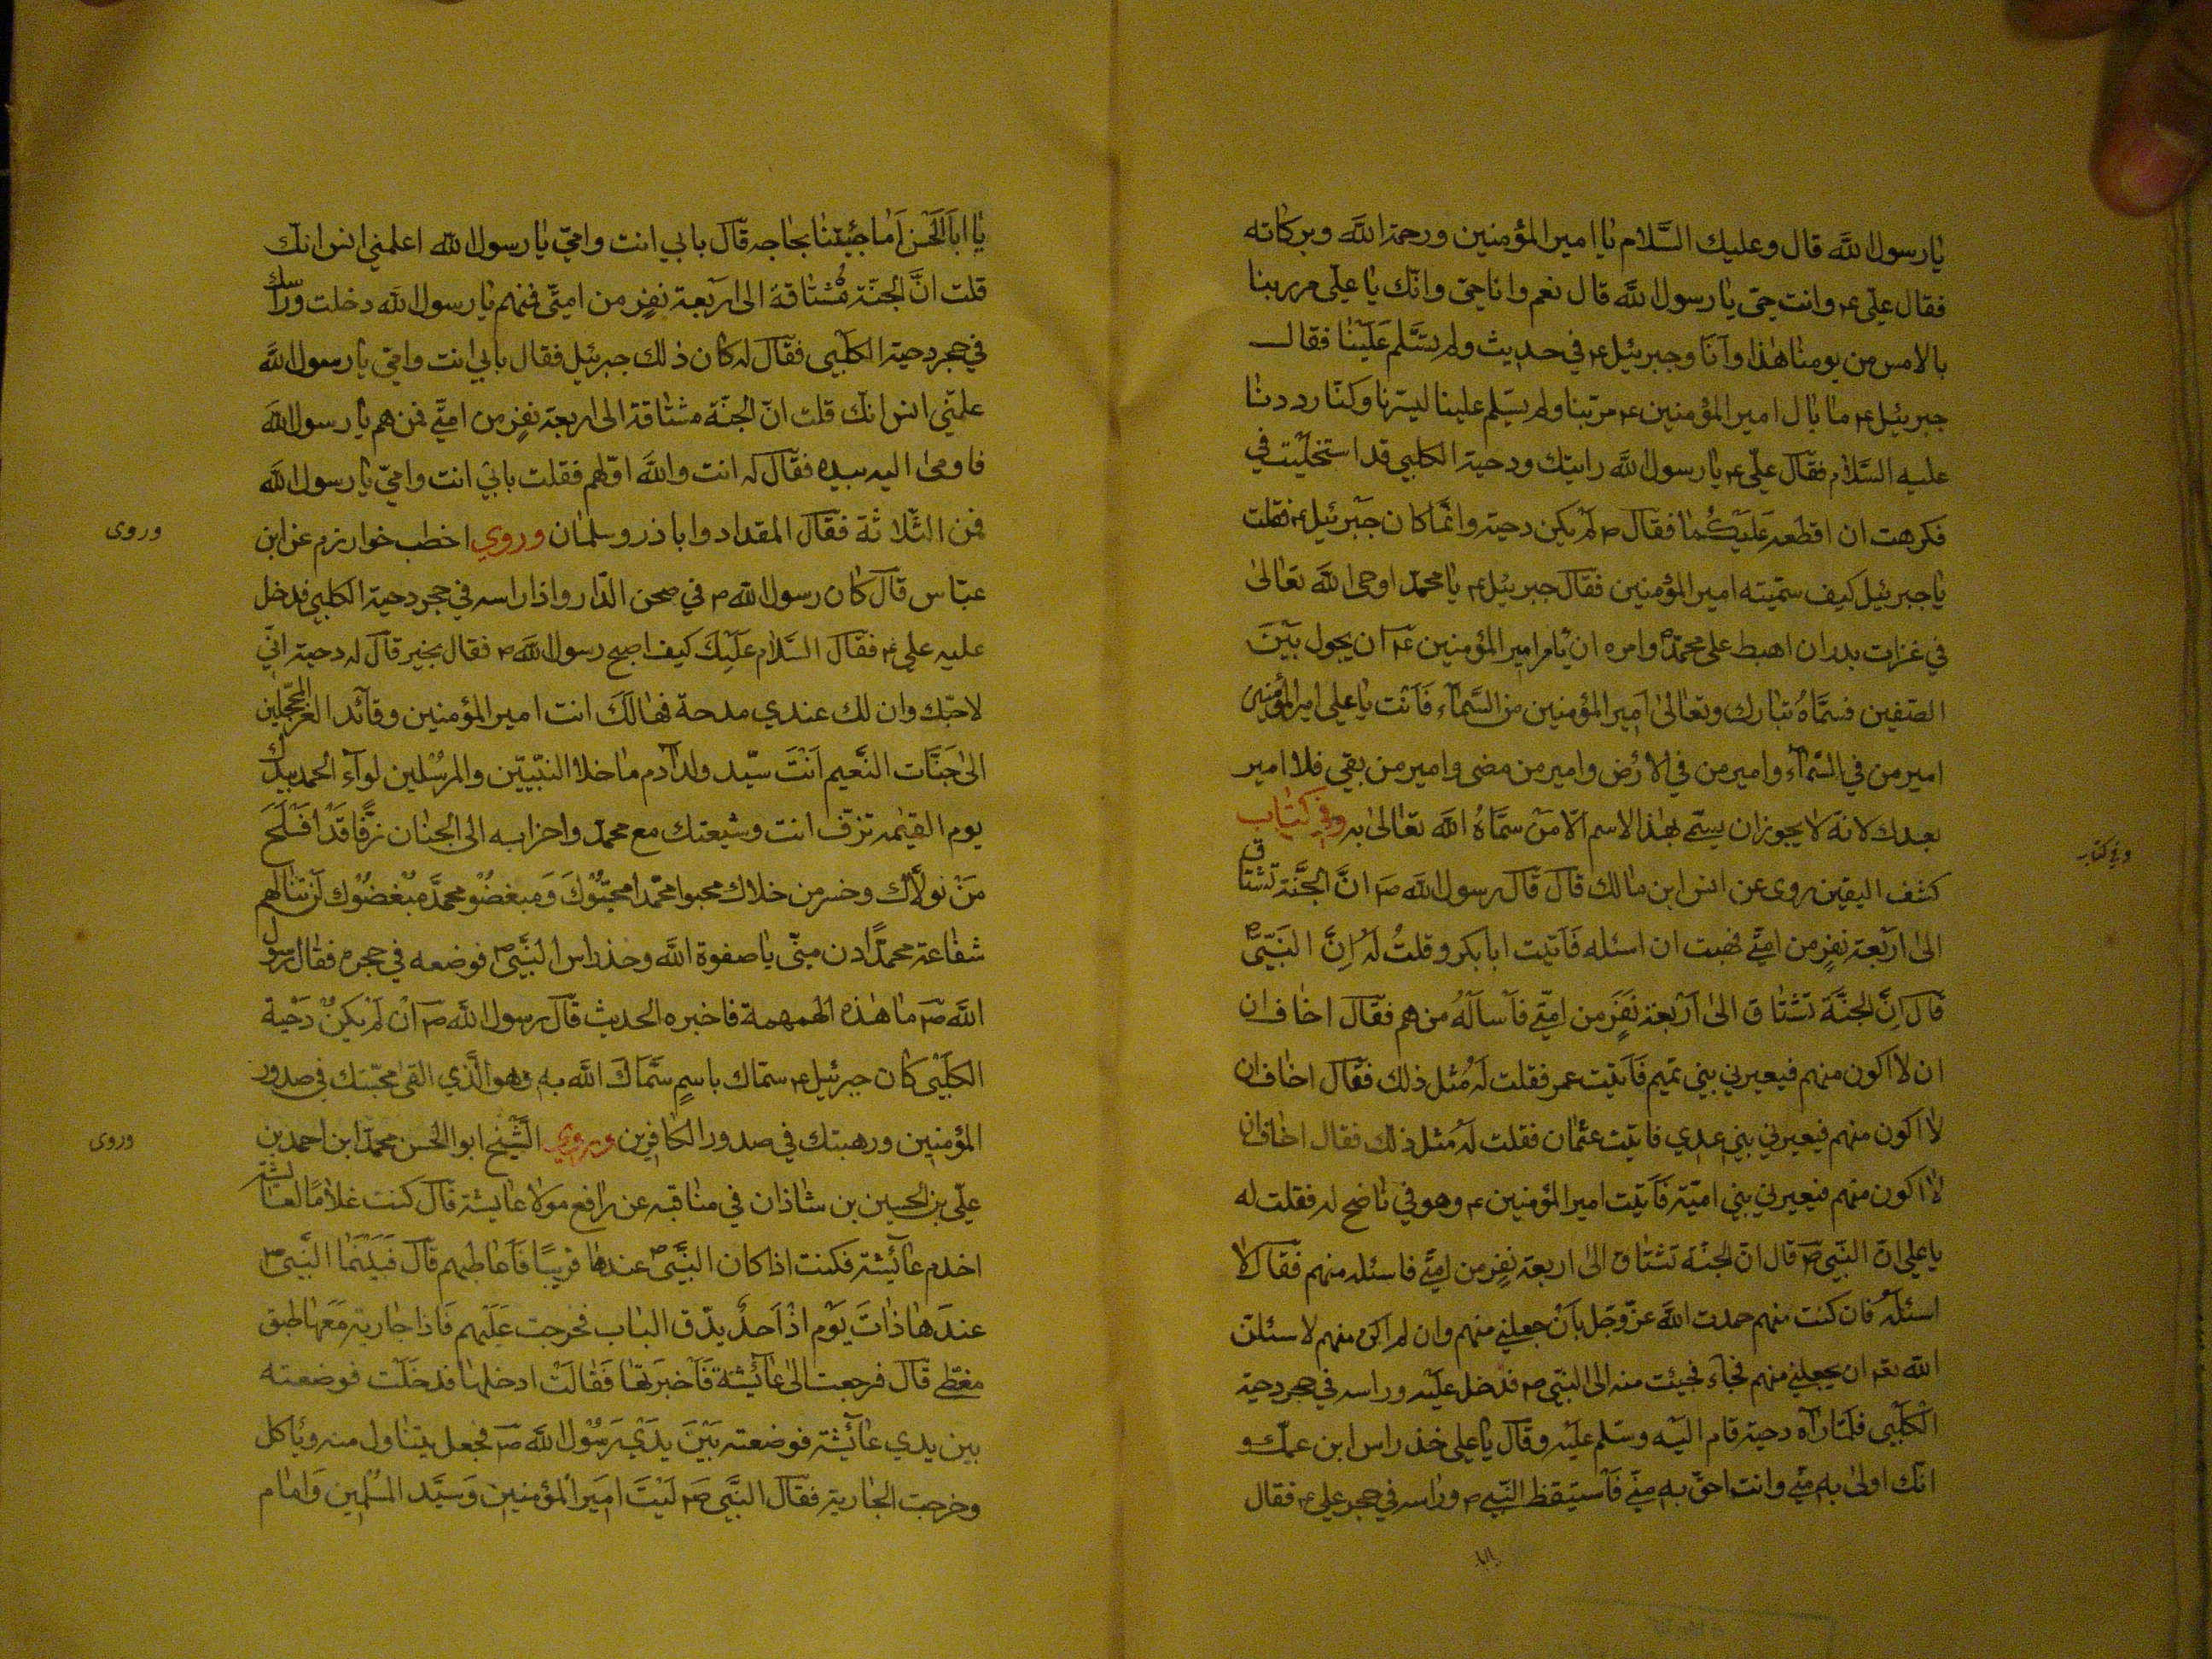 يا رسول الله قال وعليك السَّلام يا امير المؤمنين ورحمة الله وبركاته
فقال عليّ ع وانت حيّ يا رسول الله قال نعم وانا حيّ وانّك يا عليّ مررت بنا
بالامس من يومنا هذا وانا وجبرئيل ع في حديث ولم تسَلّم عَلَيْنا فقال
جبرئيل ع ما بال امير المؤمنين ع مرّ بنا ولم يسلّم علينا ليسرّنا وكنّا رددنا
عليه السَّلام فقال عليّ ع يا رسول الله رايتك ودحية الكلبي قد استخليت في
فكرهت ان اقطعه عَلَيكُما فقال ص لم يكن دحية وانّما كان جبرئيل ع فقلت
يا جبرئيل كيف سمّيته امير المؤمنين فقال جبرئيل ع يا محمّد اوحى الله تعالى
في غزات بدر ان اهبط على محمّد ص وامره ان يأمر امير المؤمنين ع ان يجول بَيْنَ
الصّفين فسمَّاهُ تبارك وتعالى امير المؤمنين من السَّماء فَانت يا علي امير المؤمنين
امير من في السَّماء وامير من في الارض وامير من مضى وامير من بقي فلا امير
بعدك لانه لا يجوز ان يسمّى بهذا الاسم الّا من سمَّاهُ الله تعالى به وفي كتاب
وفي كتاب
كشف اليقين روى عن انس ابن مالك قال قال رسول الله ص انَّ الجَنَّة تشتاق
الى اربعة نفرٍ من امّتي فهبت ان اسئله فَاتيت ابابكر وقلتُ لهُ اِنَّ النَبّيّ ص
قال اِنَّ الجنَّة تشتاق الى اَربعة نَفَرٍ من امّتي فَاسالهُ من هم فقال اخاف ان
ان لا اكون منهم فيعيرني بني تميم فَاتيت عمر فقلت لهُ مثل ذلك فقال اخاف ان
لا اكون منهم فيعيرني بني عدي فاتيت عثمان فقلت لهُ مثل ذلك فقال اخاف ان
لا اكون منهم فيعيرني بني اميّة فَاتيت امير المؤمنين ع وهو في ناضح له فقلت له
يا علي انّ النّبي ص قال انّ الجنّة تشتاق الى اربعة نفرٍ من امّتي فاسئله منهم فقال لا
اسئلهُ فان كنت منهم حمدت الله عزّ وجَل بان جعلني منهم وان لم اكن منهم لاسئلن
الله تع ان يجعلني منهم فجاء فجيئت منه الى النبي ص فدخل عليه وراسه في حجر دحية
الكلبي فلمّا رآه دحية قام اليه وسلّم عليه وقال يا علي خذ راس ابن عمّك و
انّك اولى به منّي وانت احقّ به منّي فَاستيقظ النّبي ص وراسه في حجر علي ع فقال
يا ابا
يا ابا الحَسَن اَما جئيتنا بحاجه قال بابي انت وامّي يا رسول الله اعلمني انس انك
قلت انَّ الجنّة مُشتاقة الى اربعة نفرٍ من امتي فمنهم يا رسول الله دخلت وراسك
في حجر دحية الكلبي فقال له كان ذلك جبرئيل فقال بابي انت وامّي يا رسول الله
علمّني انس انك قلت انّ الجنّة مشتاقة الى اربعة نفرٍ من امتي فمن هم يا رسول الله
فاومى اليه بيده فقال له انت والله اوّلهم فقلت بابي انت وامّي يا رسول الله
فمن الثَّلاثة فقال المقداد واباذر وسلمان وروي اخطب خوارزم عن ابن
وروى
عبّاس قال كان رسول الله ص في صحن الدّار واذا راسه في حجر دحية الكلبي فدخل
عليه علي ع فقال السَّلام عَلَيكَ كيف اصبح رسول الله ص فقال بخير قال له دحية انّي
لاحبّك وان لك عندي مدحة فهالَكَ انت امير المؤمنين وقائد الغرّ المحجّلين
الى جَنّات النَّعيم اَنْتَ سيّد ولد آدم ما خلا النبّيين والمرسُلين لوآء الحمد بيدك
يوم القيمه تزفّ انت وشيعتك مع محمد واحزابه الى الجنان زفًّا قَدْ اَفْلَحَ
مَنْ تولّاك وخسر من خلاك محبوا محمّد امحبّوكَ وَمبغضُو محمّد مبْغضُوك لن تنالهم
شفاعة محمّد ادن منّي يا صفوة الله وخذ راس النّبيّ ص فوضعه في حجره فقال رسول
الله ص ما هذه الهمهمة فاخبره الحديث قال رسول الله ص انْ لَم يكنْ دحْية
الكلبْي كان جبرئيل ع سمّاك باسمٍ سَمَّاكَ الله به وهو الَّذي القى محبّتك في صدور
المؤمنين ورهبتك في صدور الكافرين وروي الشَّيخ ابو الحسن محمّد ابن احمد بن
وروى
عليّ بن الحسين بن شاذان في مناقبه عن رافع مولا عايشة قال كنت غلامًا لعائشه
اخدم عائشة فكنت اذا كان النّبيّ ص عندها قريبًا فَاعاطيهم قال فَبَيْنَما النَّبيّ ص
عندَها ذاتَ يَوْم اذْ احَدٌ يدّق الباب فخرجت عَلَيهم فَاذا جارية مَعَها طبق
مغطّى قال فرجعت الى عائشة فَاخبرَتها فَقالَتْ ادخلها فدخَلَت فوضعته
بين يدي عائشة فوضعته بَيْنَ يدَيْ رَسُول الله ص فجعل يتناول منه وياكل
وخرجت الجارية فقال النّبي ص لَيْتَ امير المؤمنين وَسيّد المسُلمين وَامام